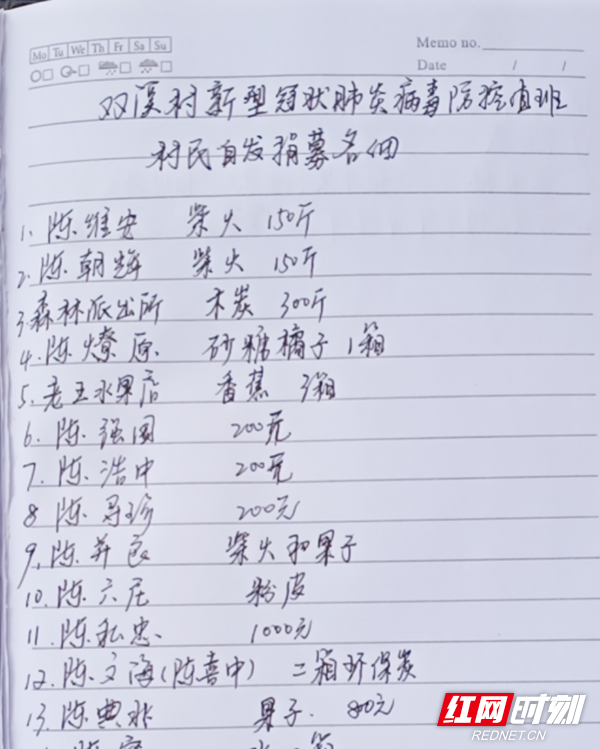 Mo Tu We Th Fr Sa Su
Memo no.
Date / /
双溪村新型冠状肺炎病毒防控值班
村民自发捐募名册
1. 陈维安 柴火 150斤
2. 陈朝辉 柴火 150斤
3. 森林派出所 木炭 300斤
4. 陈燎原 砂糖橘子 1箱
5. 老王水果店 香蕉 3箱
6. 陈强国 200元
7. 陈浩中 200元
8 陈 珍 200元
9. 陈 良 柴火和果子
10. 陈六 粉皮
11. 陈私忠 1000元
12. 陈文海(陈喜中) 二箱环保炭
13. 陈典 果子. 800元
红网时刻
REDNET.CN